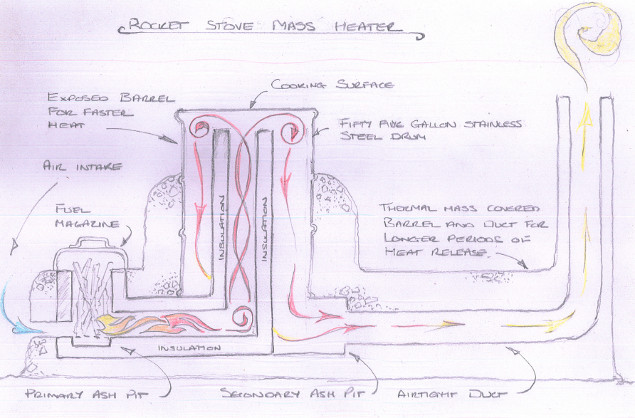 ROCKET STOVE MASS HEATER
COOKING SURFACE
EXPOSED BARREL
FOR FASTER
HEAT
FIFTY FIVE GALLON STAINLESS
STEEL DRUM
AIR INTAKE
FUEL
MAGAZINE
INSULATION
INSULATION
THERMAL MASS COVERED
BARREL AND DUCT FOR
LONGER PERIODS OF
HEAT RELEASE.
INSULATION
PRIMARY ASH PIT
SECONDARY ASH PIT
AIRTIGHT DUCT